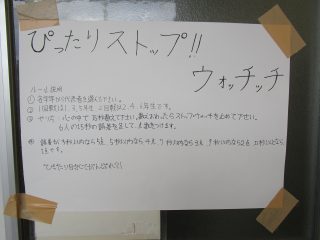 ぴったりストップ!!
ウォッチッチ
ルール説明
① 各学年から代表者を選んで下さい。
② 1回戦は1.3.5年生 2回戦は2.4.6年生です。
③ やり方・心の中で 15秒数えて下さい。数えおわったらストップウォッチを止めて下さい。
6人の15秒の誤差を足して、人数をつけます。
誤差が 3秒以内なら5点 5秒以内なら 4点 7秒以内なら3点 9秒以内なら2点
1点です。